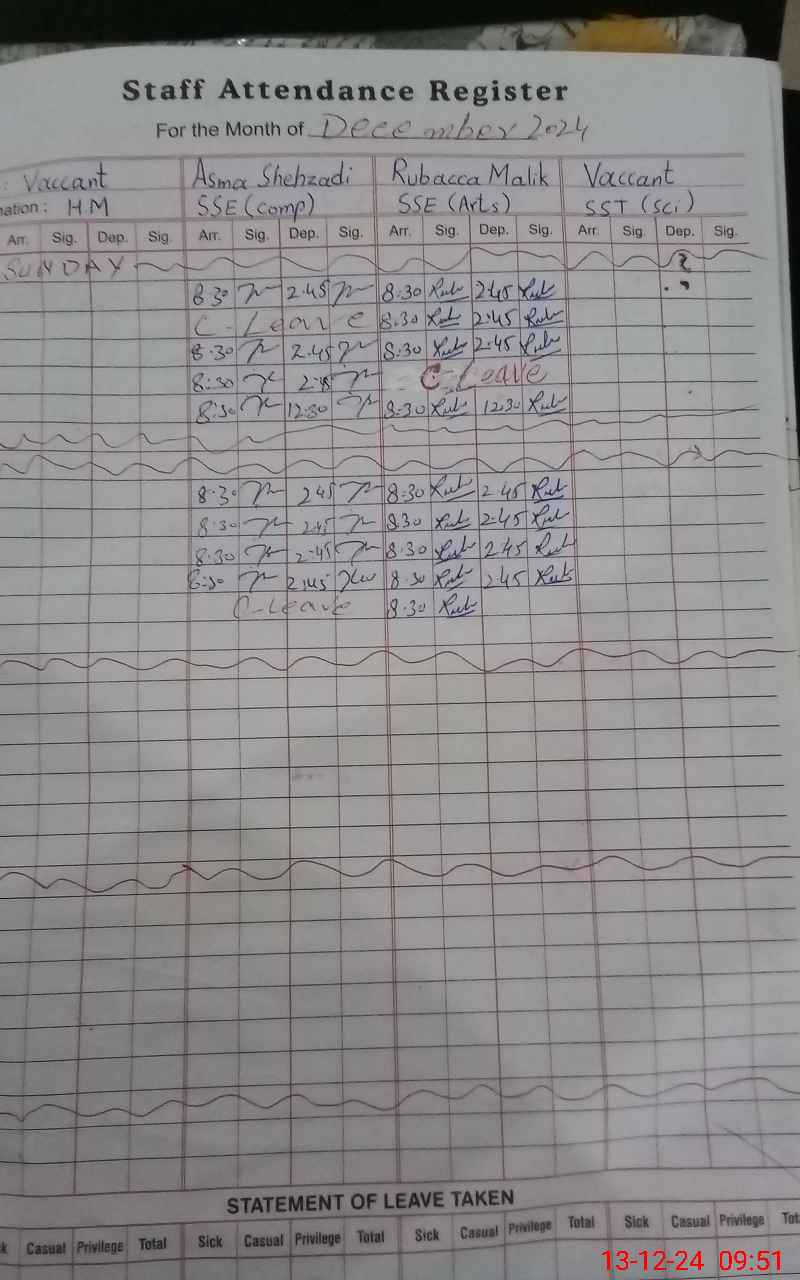 Staff Attendance Register
For the Month of December 2024
: Vaccant Asma Shehzadi Rubacca Malik Vaccant
nation: HM SSE (comp) SSE (Arts) SST (Sci)
Arr. Sig. Dep. Sig. Arr. Sig. Dep. Sig. Arr. Sig. Dep. Sig. Arr. Sig. Dep. Sig.
SUNDAY
8:30 2.45 8:30 Rub 2:45 Rub
C-Leave 8:30 Rub 2:45 Rub
8:30 2.45 8:30 Rub 2:45 Rub
8:30 C-Leave
8:30 12:30 8:30 Rub 12:30 Rub
8:30 245 8:30 Rub 2:45 Rub
8:30 2:45 8:30 Rub 2:45 Rub
8:30 2:45 8:30 Rub 2:45 Rub
8:30 2:45 8:30 Rub 2:45 Rub
C-Leave 8:30 Rub
STATEMENT OF LEAVE TAKEN
k Casual Privilege Total Sick Casual Privilege Total Sick Casual Privilege Total Sick Casual Privilege Tot
13-12-24 09:51